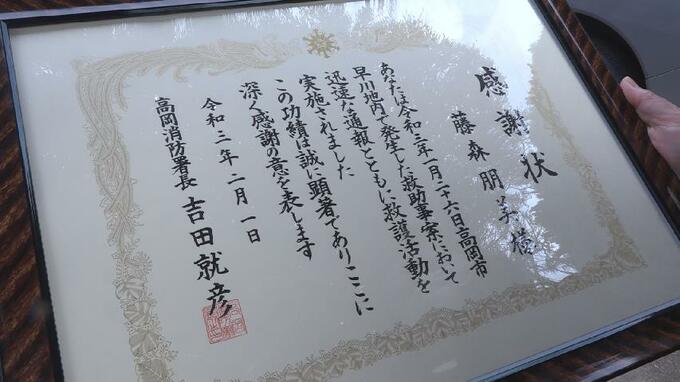 感謝状
藤森朋美様
あなたは令和三年一月二十六日高岡市
早川地内で発生した救助事案において
迅速な通報とともに救護活動を
実施されました
この功績は誠に顕著でありここに
深く感謝の意を表します
令和三年二月一日
高岡消防署長 吉田就彦